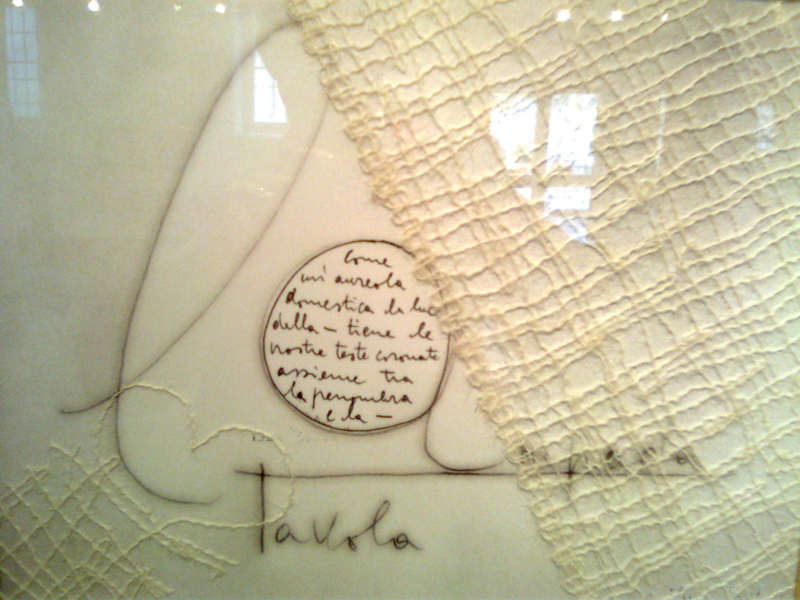 Come
un'aureola
domestica la luc
della — tiene le
nostre teste coronate
assieme tra
la penombra
e la —
Tavola